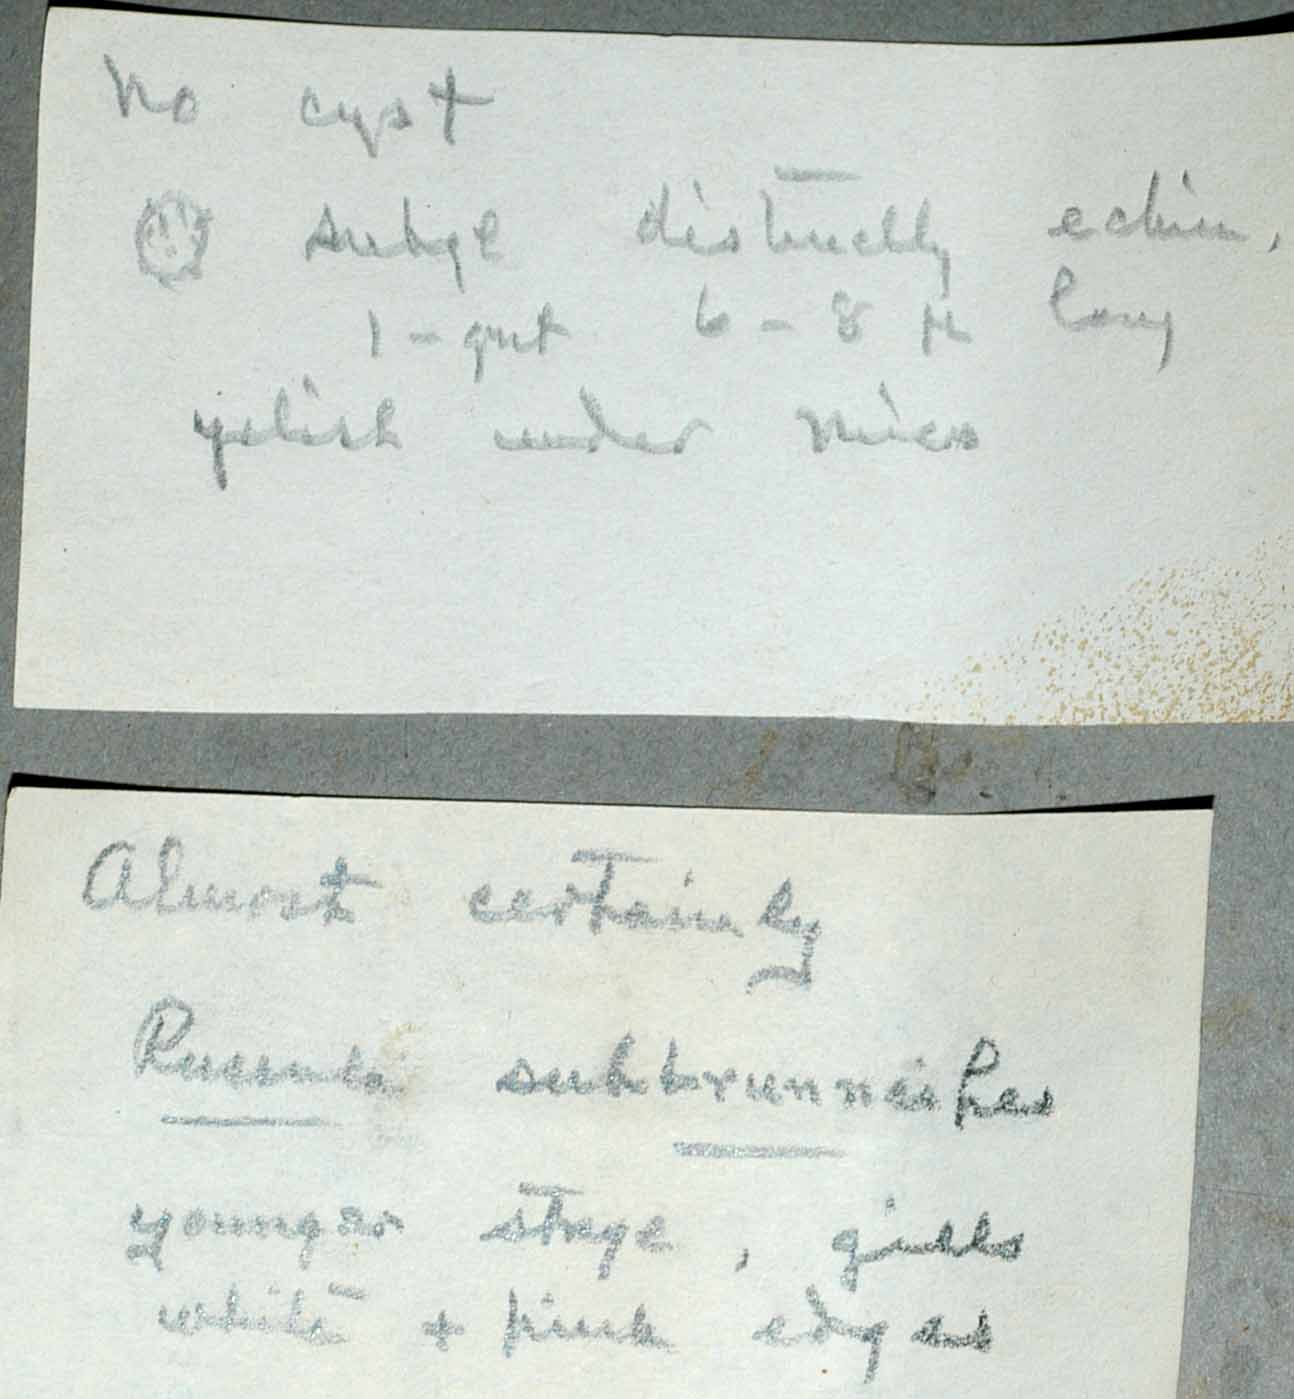 No cyst
subgl distinctly echin,
1-gut 6-8 µ long
yelish under micro
Almost certainly
Russula subbrunneipes
younger stage, gills
white + pink edges